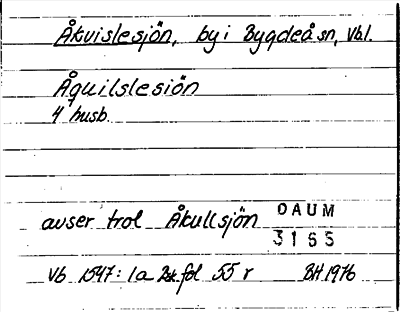 Åkvislesjön, by i Bygdeå sn, Vbl.
Åquilslesiön
4 husb.
avser trol Åkullsjön DAUM
3165
Vb 1547: 1a fol 55 r BH 1976